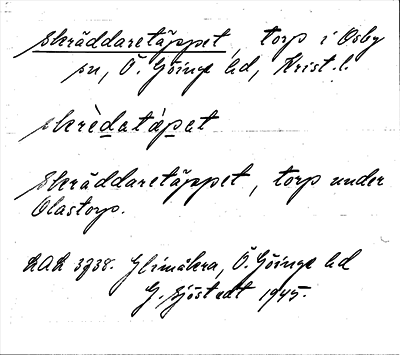 Skräddaretäppet, torp i Osby
sn, Ö. Göinge hd, Krist. l.
skrèdatápet
Skräddaretäppet, torp under
Olastorp.
LAL 3238. Glimåkra, Ö. Göinge hd
G. Sjöstedt 1945.